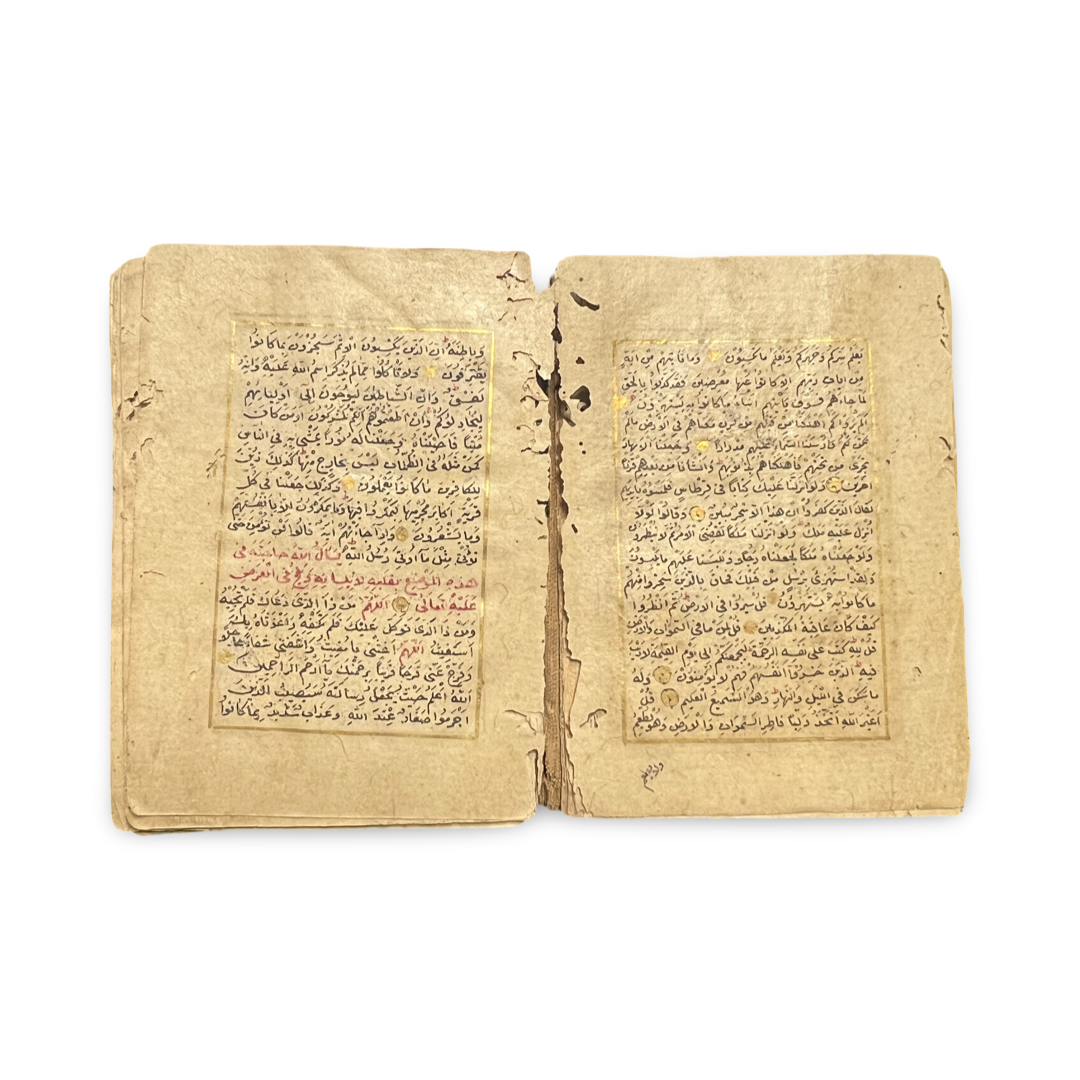 يعلم سركم وجهركم ويعلم ما تكسبون وما تاتيهم من اية
من ايات ربهم الا كانوا عنها معرضين فقد كذبوا بالحق
لما جاءهم فسوف ياتيهم انباء ما كانوا به يستهزؤن
الم يروا كم اهلكنا من قبلهم من قرن مكناهم في الارض مالم
نمكن لكم وارسلنا السماء عليهم مدرارا وجعلنا الانهار
تجري من تحتهم فاهلكناهم بذنوبهم وانشأنا من بعدهم قرنا
اخرين ولو نزلنا عليك كتابا في قرطاس فلمسوه بايديهم
لقال الذين كفروا ان هذا الا سحر مبين وقالوا لولا
انزل عليه ملك ولو انزلنا ملكا لقضي الامر ثم لا ينظرون
ولو جعلناه ملكا لجعلناه رجلا وللبسنا عليهم ما يلبسون
ولقد استهزئ برسل من قبلك فحاق بالذين سخروا منهم
ما كانوا به يستهزؤن قل سيروا في الارض ثم انظروا
كيف كان عاقبة المكذبين قل لمن ما في السموات والارض
قل لله كتب على نفسه الرحمة ليجمعنكم الى يوم القيمة لا ريب
فيه الذين خسروا انفسهم فهم لا يؤمنون وله
ما سكن في الليل والنهار وهو السميع العليم قل
اغير الله اتخذ وليا فاطر السموات والارض وهو يطعم
ولا يطعم
وباطنه ان الذين يكسبون الاثم سيجزون بما كانوا
يقترفون ولا تاكلوا مما لم يذكر اسم الله عليه وانه
لفسق وان الشياطين ليوحون الى اوليائهم
ليجادلوكم وان اطعتموهم انكم لمشركون اومن كان
ميتا فاحييناه وجعلنا له نورا يمشي به في الناس
كمن مثله في الظلمات ليس بخارج منها كذلك زين
للكافرين ما كانوا يعملون وكذلك جعلنا في كل
قرية اكابر مجرميها ليمكروا فيها وما يمكرون الا بانفسهم
وما يشعرون واذا جاءتهم اية قالوا لن نؤمن حتى
نؤتى مثل ما اوتي رسل الله يسأل الله حاجته في
هذه الموضع بقلبه لا بلسانه في
عليه تعالى اللهم من ذا الذي دعاك فلم تجبه
ومن ذا الذي توكل عليك فلم تكفه واغوثاه
اللهم اغثني يا مغيث واشفني شفاء عاجلا
وفرج عني فرجا قريبا برحمتك يا ارحم الراحمين
الله اعلم حيث يجعل رسالته سيصيب الذين
اجرموا صغار عند الله وعذاب شديد بما كانوا